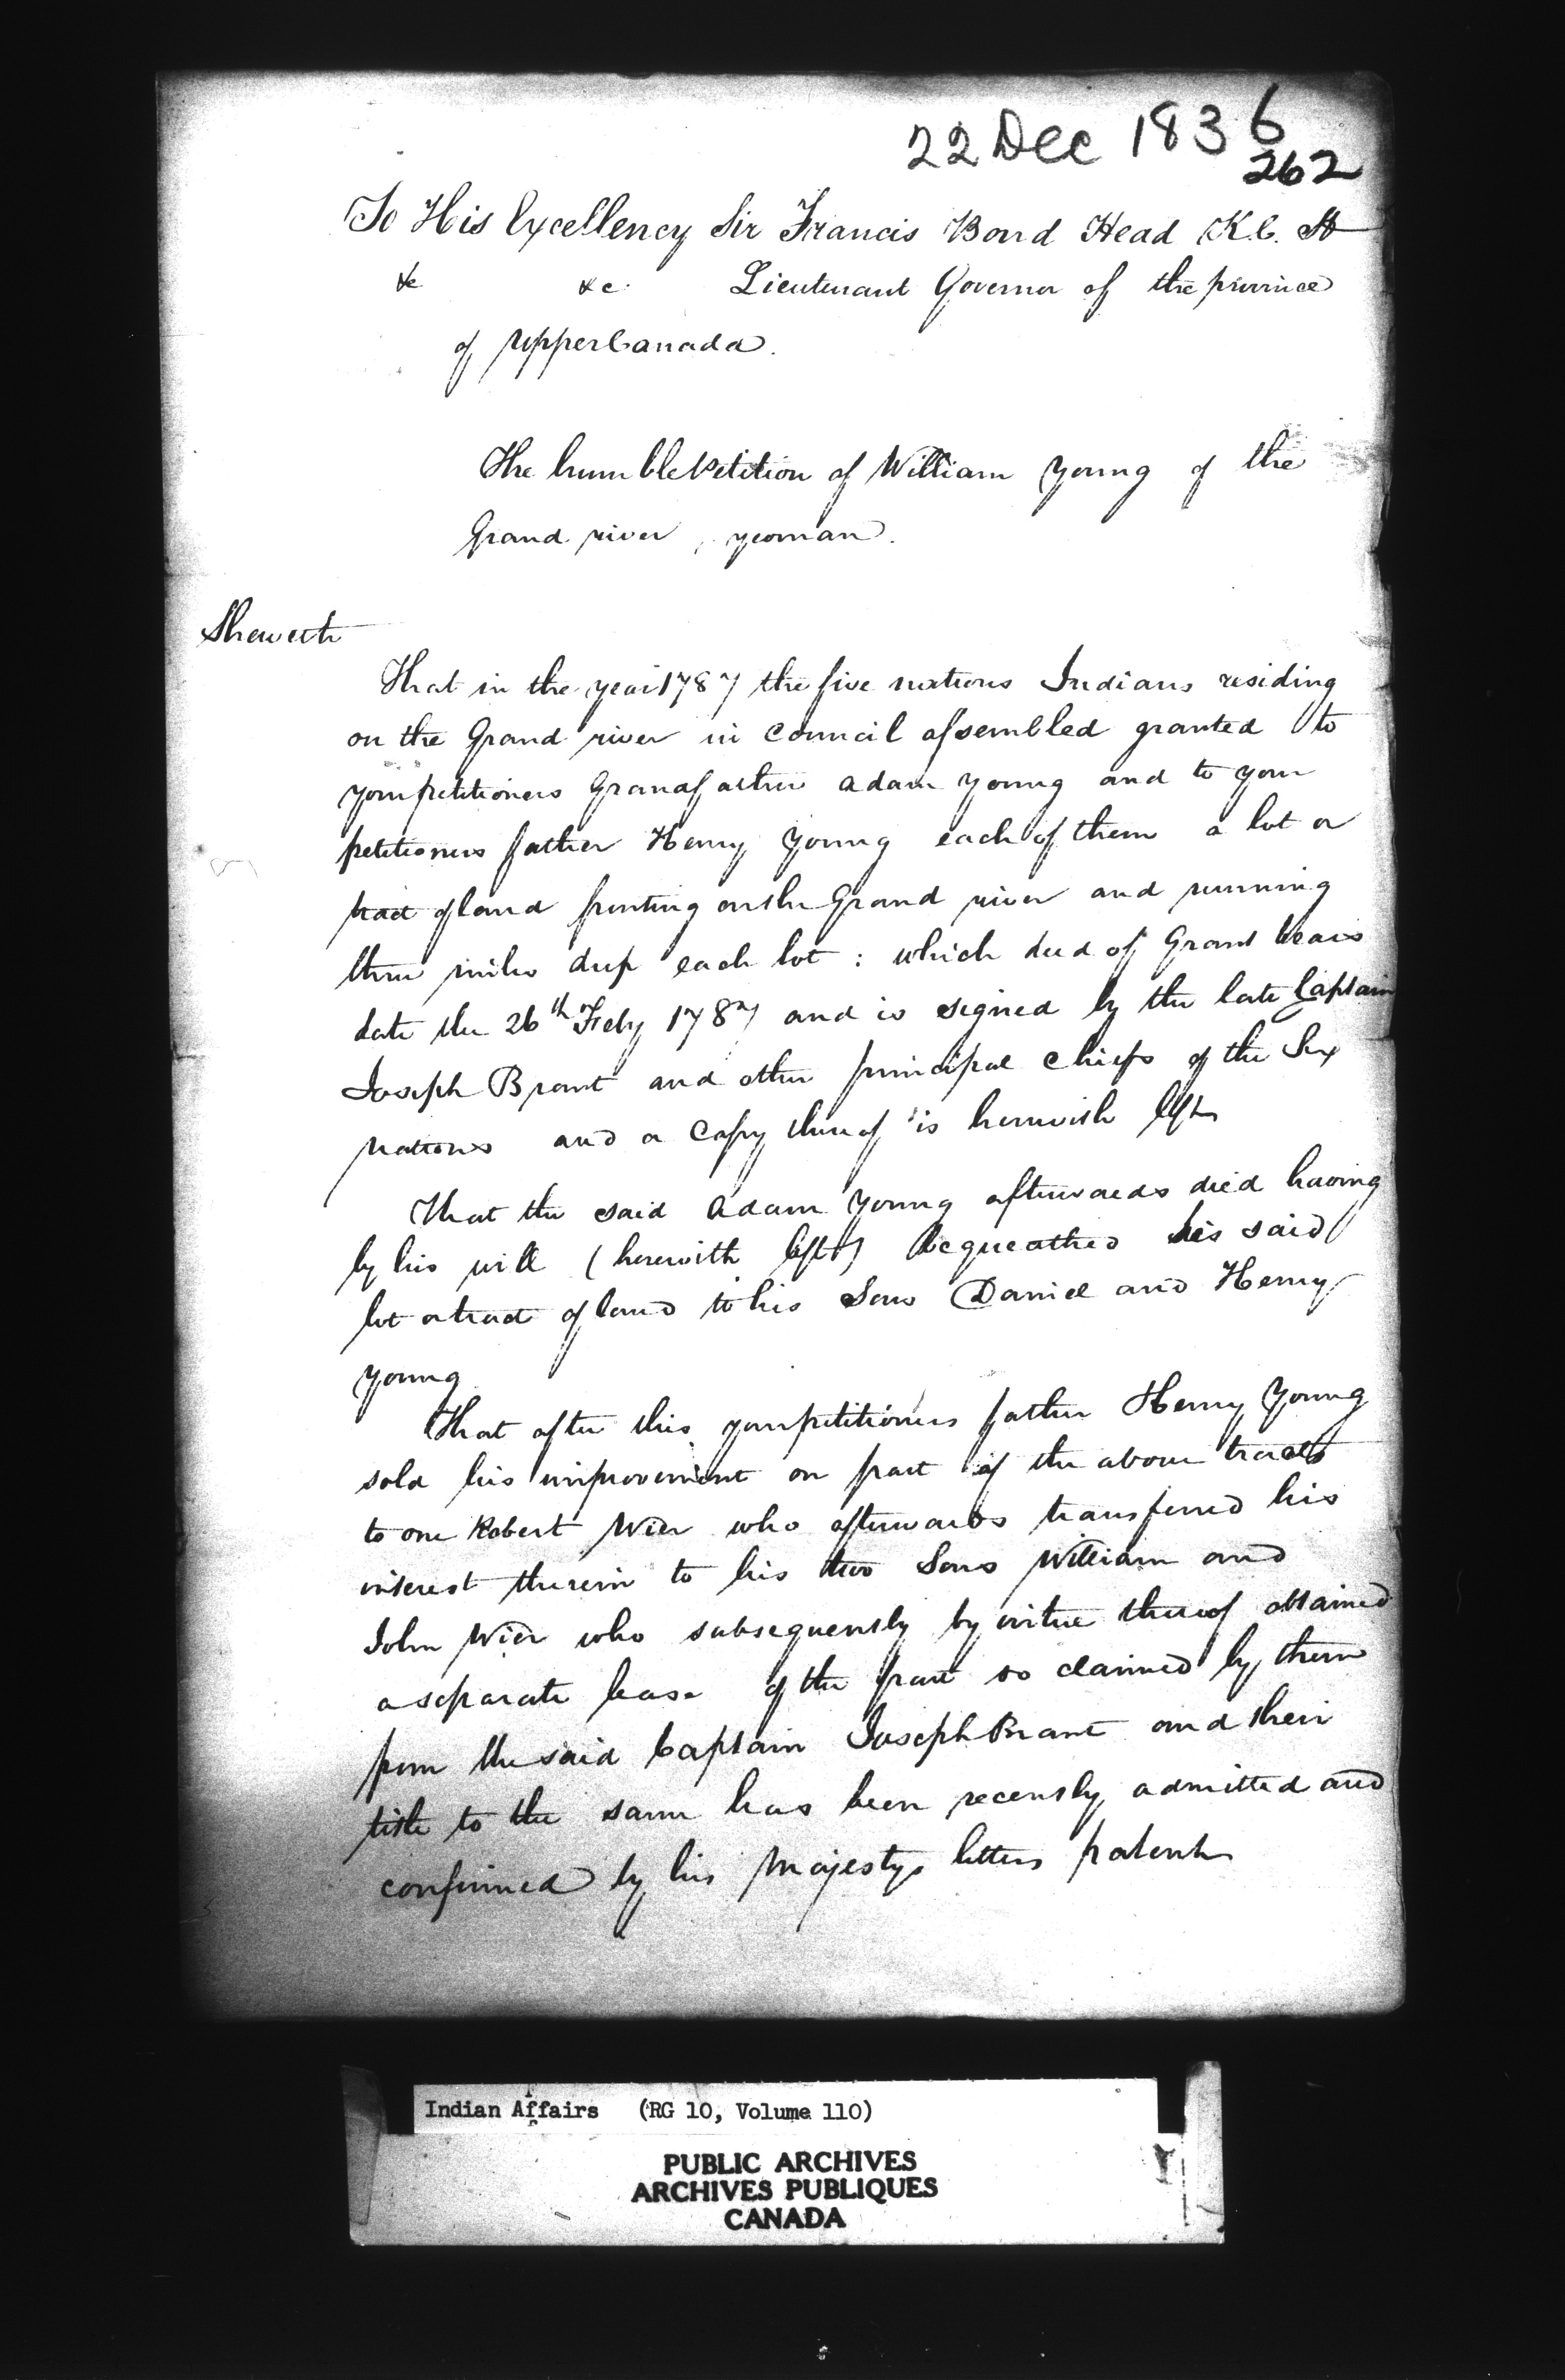 22 Dec 1836
262
To His Excellency Sir Francis Bond Head K.C. H
&c &c. Lieutenant Governor of the province
of Upper Canada.
The humble Petition of William Young of the
Grand river, yeoman.
Sheweth
That in the year 1787 the five nations Indians residing
on the Grand river in Council assembled granted to
your petitioners Grandfather Adam Young and to your
petitioners father Henry Young each of them a lot or
tract of land fronting on the Grand river and running
three miles deep each lot : which deed of Grant bears
date the 26th Feby 1787 and is signed by the late Captain
Joseph Brant and other principal Chiefs of the Six
nations and a Copy thereof is herewith left
That the said Adam Young afterwards died having
by his will (herewith left) bequeathed his said
lot or tract of land to his Sons Daniel and Henry
Young
That after this your petitioners father Henry Young
sold his improvement on part of the above tracts
to one Robert Wier who afterwards transferred his
interest therein to his two Sons William and
John Wier who subsequently by virtue thereof obtained
a separate lease of the part so claimed by them
from the said Captain Joseph Brant and their
title to the same has been recently admitted and
confirmed by his Majestys letters patent
Indian Affairs (RG 10, Volume 110)
PUBLIC ARCHIVES
ARCHIVES PUBLIQUES
CANADA